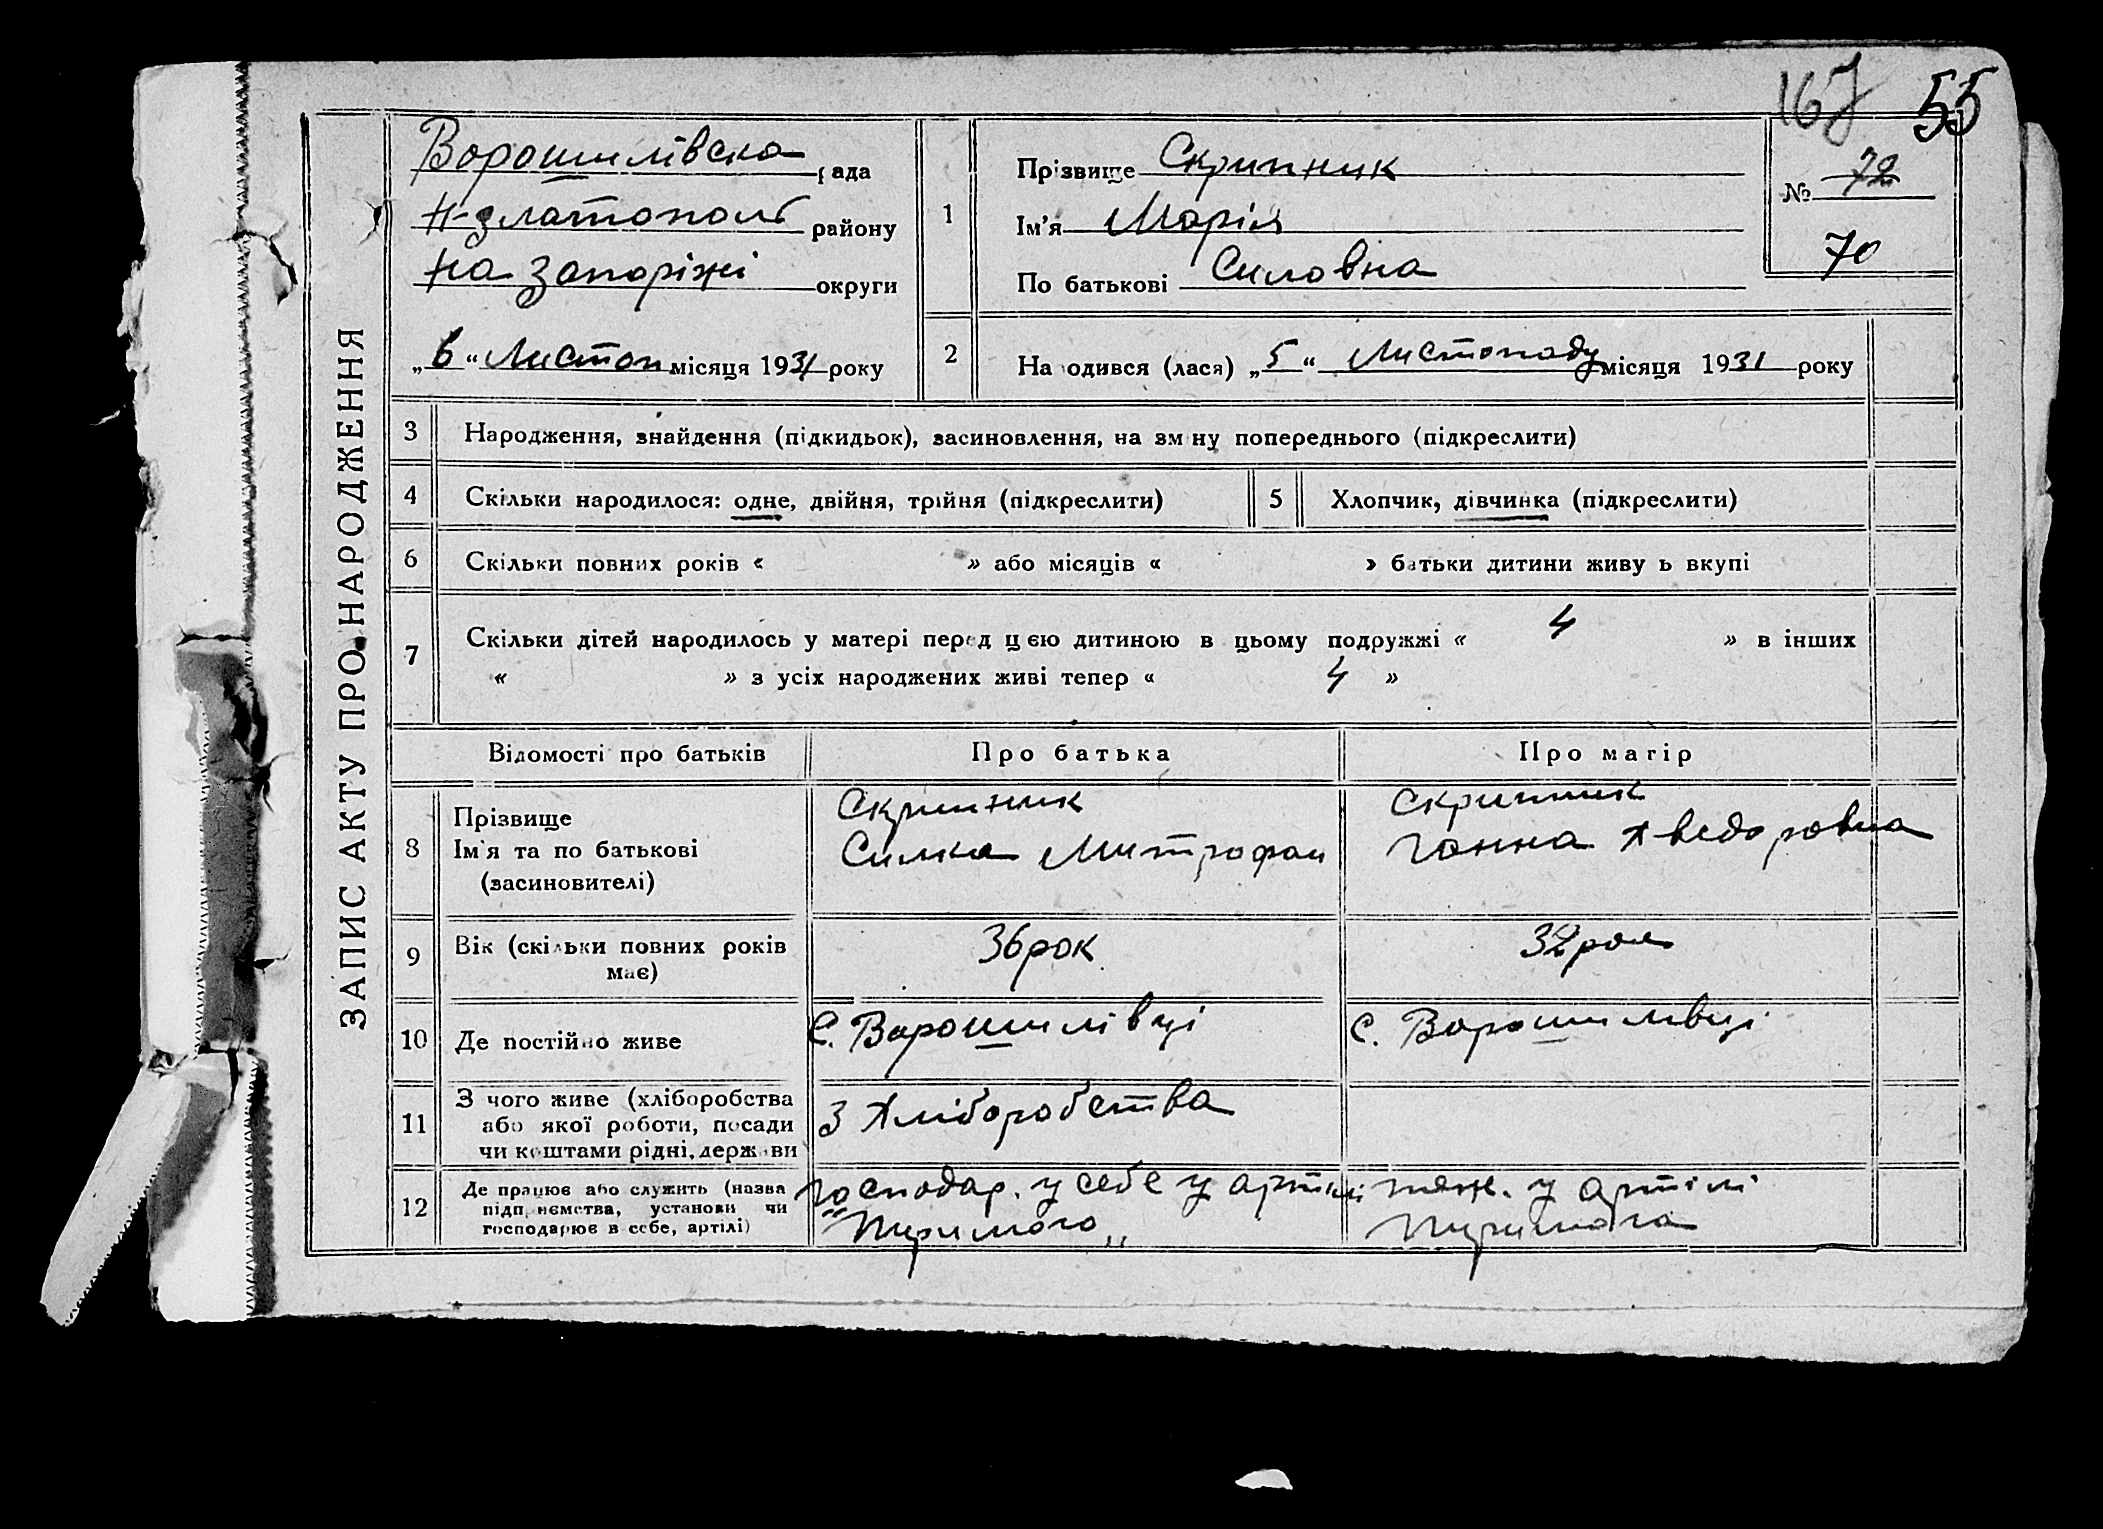 167 55
ЗАПИС АКТУ ПРО НАРОДЖЕННЯ
Ворошилівска рада
Н-златополь району
На Запоріжі округи
„6“ Листоп місяця 1931 року
1
Прізвище Скрипник
Ім'я Марія
По батькові Силовна
№ 72
70
2
На одився (лася) „5“ Листопаду місяця 1931 року
3 Народження, знайдення (підкидьок), засиновлення, на зм ну попереднього (підкреслити)
4 Скільки народилося: одне, двійня, трійня (підкреслити)
5 Хлопчик, дівчинка (підкреслити)
6 Скільки повних років « » або місяців « » батьки дитини живу ь вкупі
7 Скільки дітей народилось у матері перед цією дитиною в цьому подружжі « 4 » в інших
« » з усіх народжених живі тепер « 4 »
Відомості про батьків Про батька Про матір
8 Прізвище
Ім'я та по батькові
(засиновителі)
Скрипник
Силка Митрофан
Скрипник
Ганна Хведоровна
9 Вік (скільки повних років
має)
36 рок
32 рок
10 Де постійно живе
С. Ворошилівці
С. Ворошилівці
11 З чого живе (хліборобства
або якої роботи, посади
чи коштами рідні, держави
З Хліборобства
12 Де працює або служить (назва
підприємства, установи чи
господарює в себе, артілі)
господар. у себе у артілі
у артілі